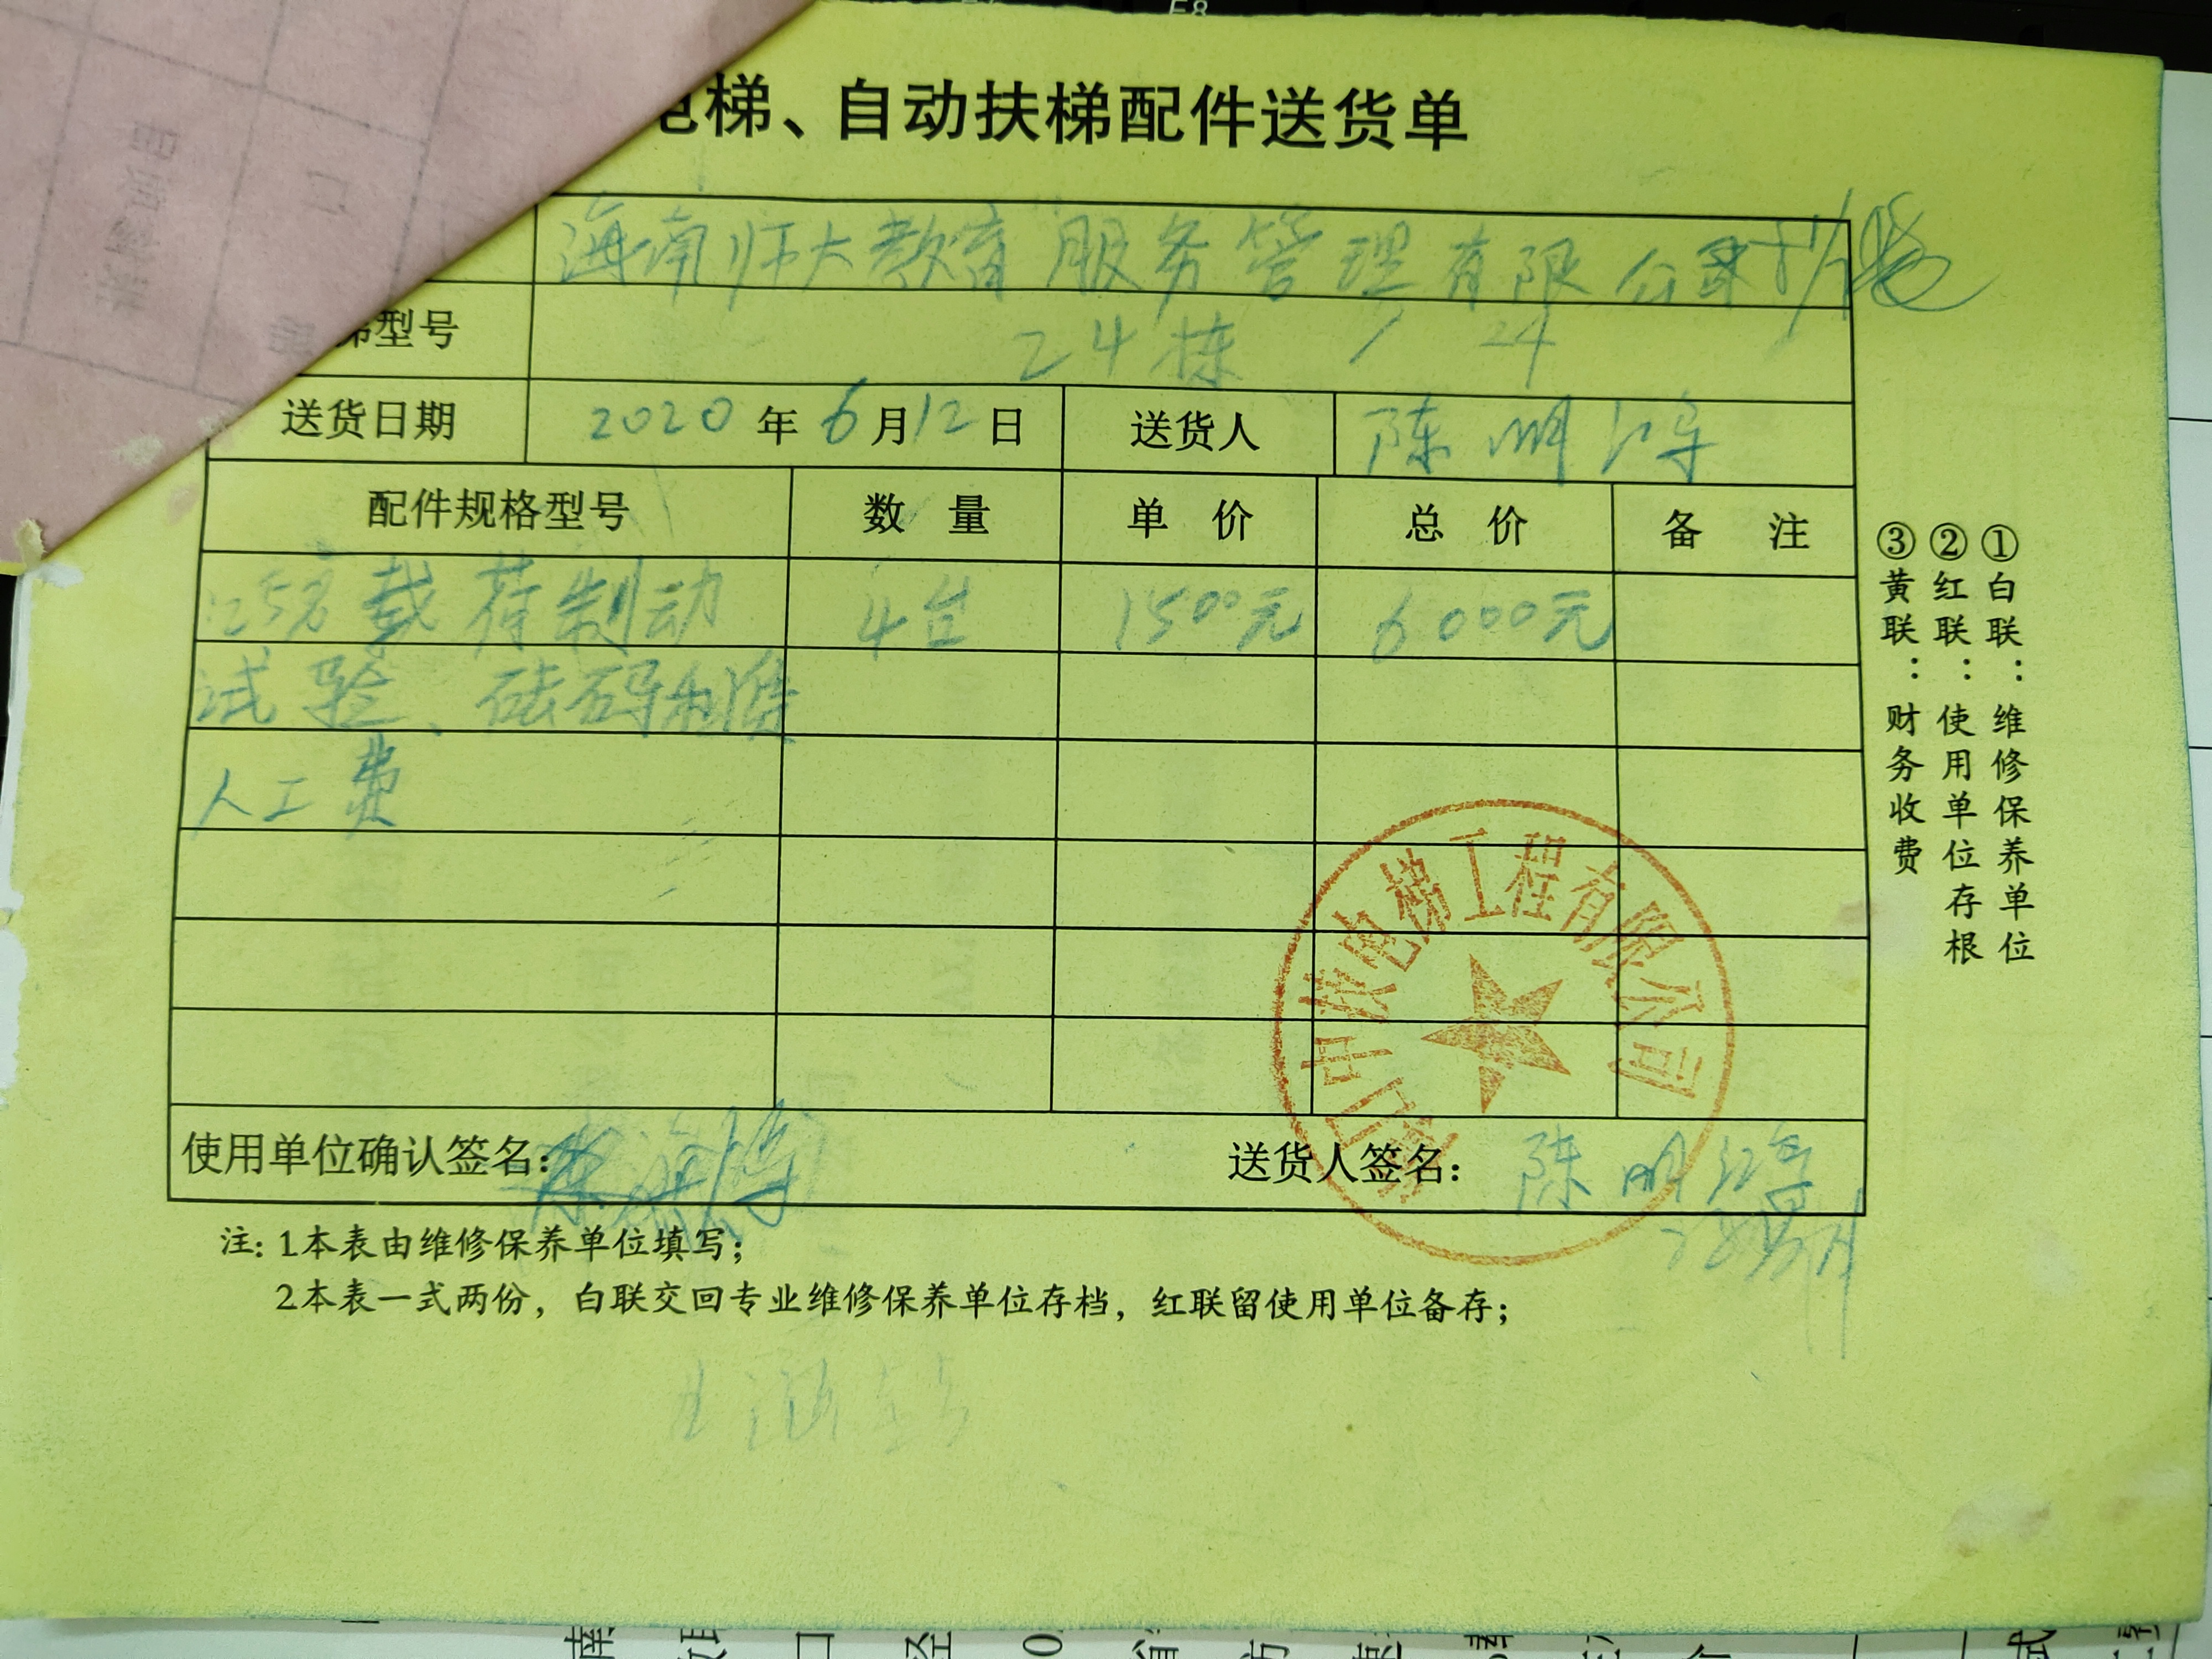 梯、自动扶梯配件送货单
海南师大教育服务管理有限公司
梯型号 24栋 / 24
送货日期 2020 年 6 月 12 日 送货人 陈明
配件规格型号 数 量 单 价 总 价 备 注
125% 载荷制动 4台 1500元 6000元
试验、砝码租赁
人工费
电梯工程有限公司
使用单位确认签名: 送货人签名: 陈明
注: 1本表由维修保养单位填写;
2本表一式两份, 白联交回专业维修保养单位存档, 红联留使用单位备存;
①白联:维修保养单位
②红联:使用单位存根
③黄联:财务收费